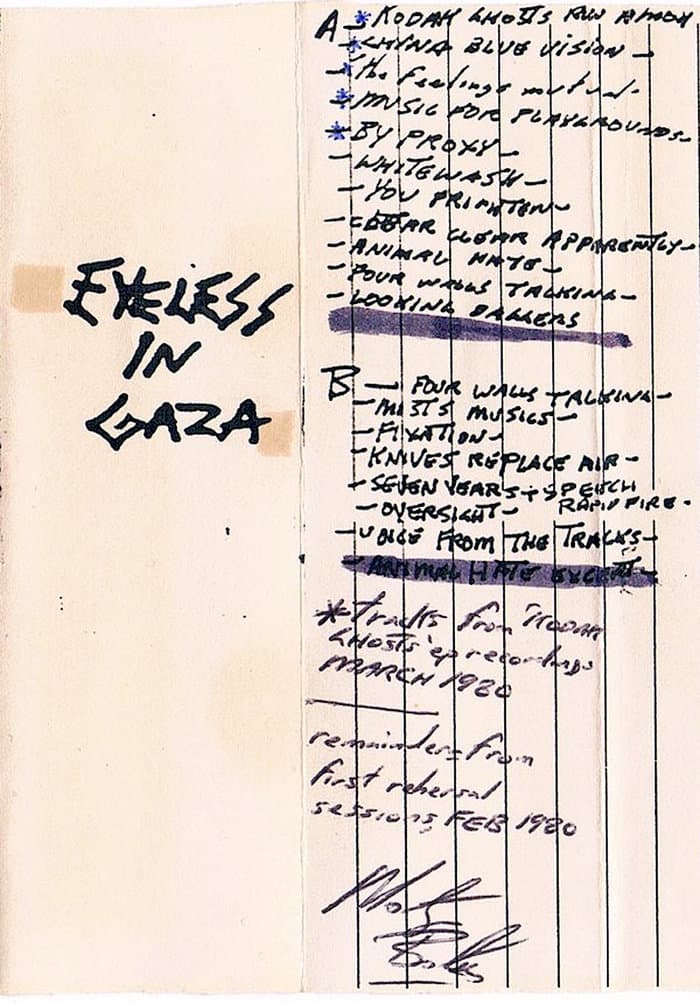 EYELESS
IN
GAZA
A - * KODAK GHOSTS RUN AMOK
- * CHINA BLUE VISION -
- * the feelings mutual -
- * MUSIC FOR PLAYGROUNDS -
- * BY PROXY -
- WHITEWASH -
- YOU FRIGHTEN -
- CLEAR CLEAR APPARENTLY -
- ANIMAL HATE -
- FOUR WALLS TALKING -
- LOOKING DAGGERS
B - FOUR WALLS TALKING -
- MISTS MUSICS -
- FIXATION -
- KNIVES REPLACE AIR -
- SEVEN YEARS - SPEECH
RAPID FIRE -
- OVERSIGHT -
- VOICE FROM THE TRACKS -
- ANIMAL HATE EXCERPT -
* tracks from 'KODAK
GHOSTS' ep recordings
MARCH 1980
remainders from
first rehersal
sessions, FEB 1980